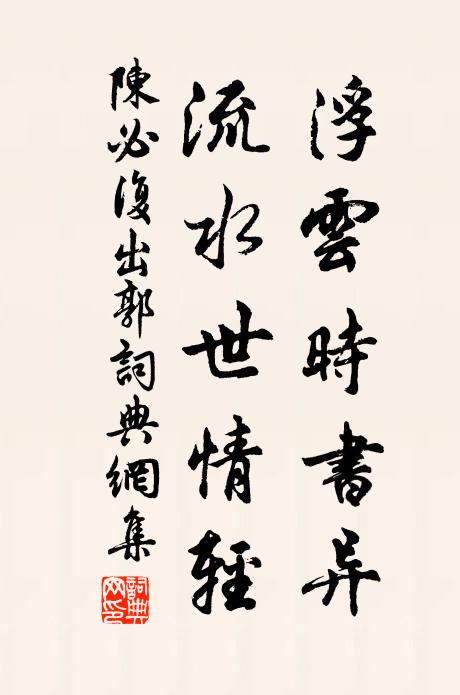 浮雲時書异
流水世情輕
陳必復出郭詞典網集
詞典网印